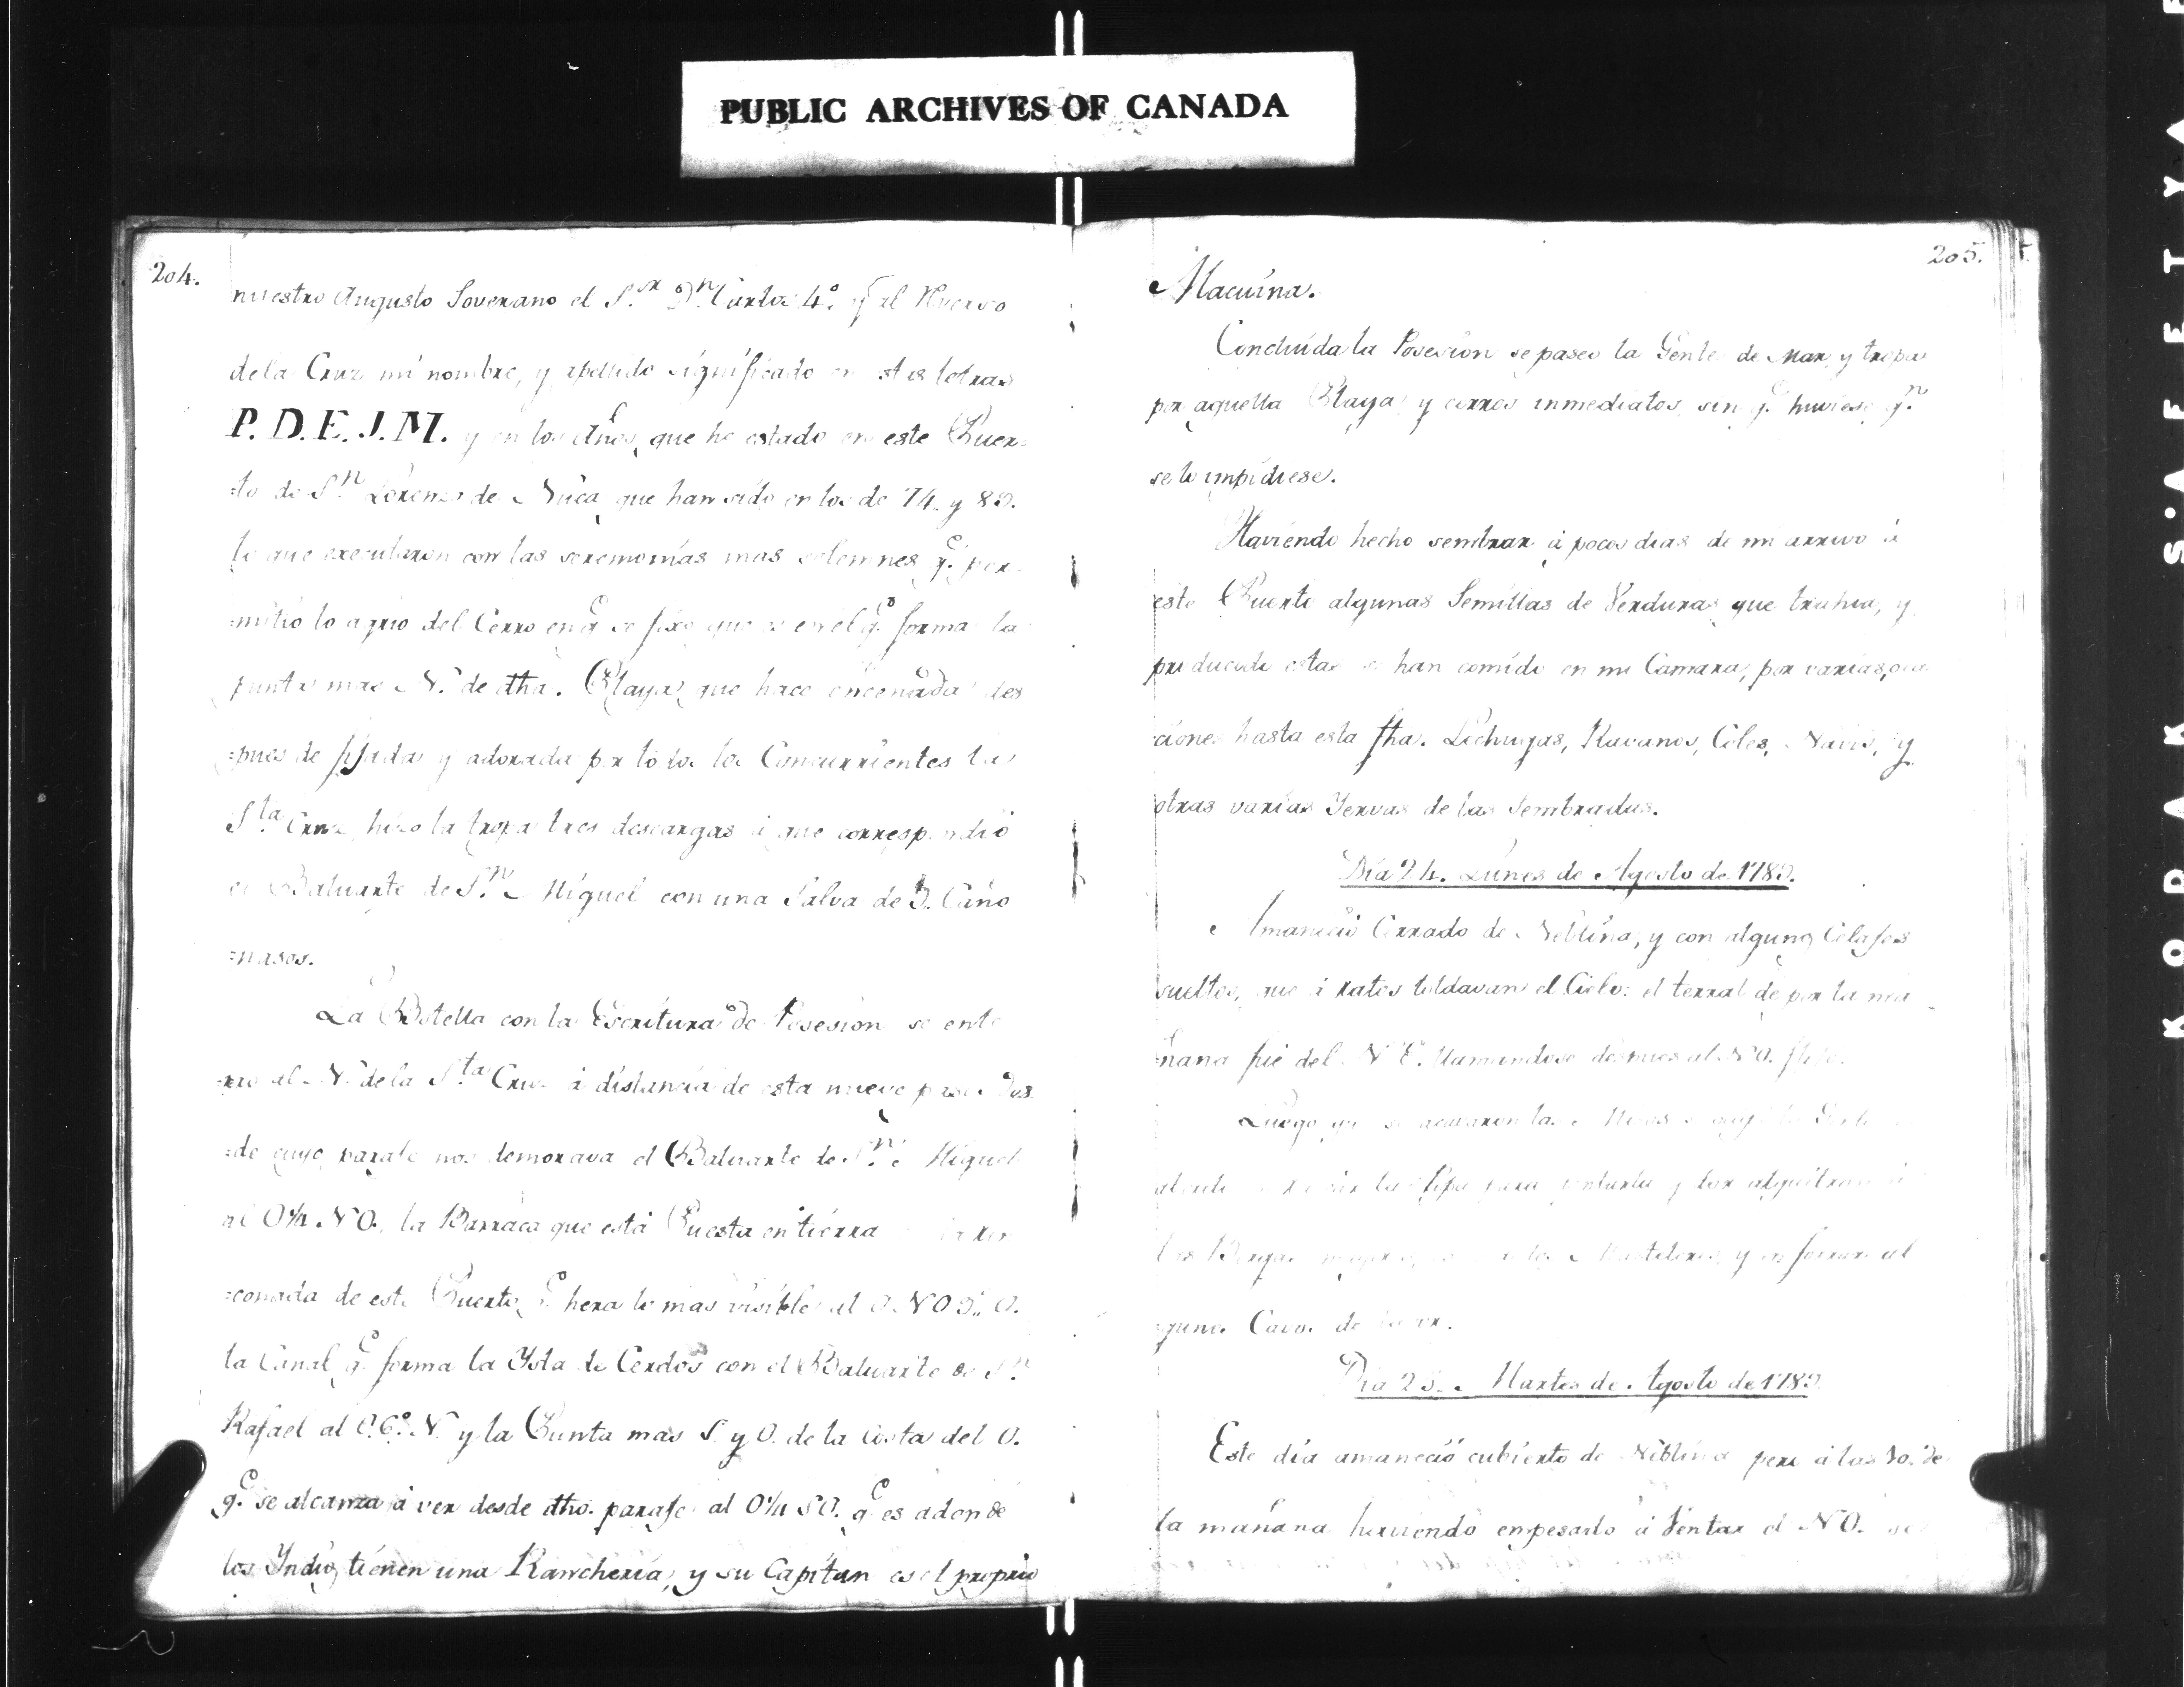 PUBLIC ARCHIVES OF CANADA
204.
nuestro Augusto Soverano el S.or D.n Carlos 4.o y al Reverso
dela Cruz mi nombre, y apellido significado en estas letras
P. D. E. J. M. y en los Años, que he estado en este Puer=
=to de S.n Lorenzo de Nuca, que han sido en los de 74. y 89.
lo que executaron con las seremonias mas solemnes q.e per=
=mitio lo agrio del Cerro en q.e se fixo que es en el q.e forma la
punta mas N. de dha. Playa, que hace encenada des
=pues de fijada y adorada por todos los Concurrientes la
S.ta Cruz, hizo la tropa tres descargas á que correspondió
el Baluarte de S.n Miguel con una Salva de Caño
=nasos.
La Botella con la Escritura de Posesion se ente
=rro al N. de la S.ta Cruz á distancia de esta nueve pasos des
=de cuyo parale nos demorava el Baluarte de S.n Miguel
al O¼.NO., la Barraca que está Puesta en tierra la rin
=conada de este Puerto, q.e hera lo mas visible al O.NO O.
la Canal, q.e forma la Ysla de Cerdos con el Baluarte de S.n
Rafael al O.6.o N. y la Punta mas S. y O. de la Costa del O.
q.e se alcanza á ver desde dho. parafe al O¼ SO. q.e es adonde
los Yndios tienen una Rancheria, y su Capitan es el proprio
205.
Macuina.
Concluida la Posesion se paseo la Gente de Mar, y tropa
por aquella Playa y cerros inmediatos, sin q.e huviese q.n
se lo impidiese.
Haviendo hecho sembrar á pocos dias de mi arrivo á
este Puerto algunas Semillas de Verduras que trahia, y
producido estas se han comido en mi Camara, por varias, oca
=ciones hasta esta fha. Lechugas, Ravanos, Coles, Navos, y
otras varias Yervas de las Sembradas.
Dia 24. Lunes de Agosto de 1789.
Amaneció Cerrado de Neblina, y con algunos Celafes
sueltos, que á ratos toldavan el Cielo: el terral de por la ma
=ñana fué del N E. llamandose despues al NO. fijo.
Luego q.e se acavaron las Misas
la Pipa para y dar alquitran á
las Bergas Mastileros, y en forrar al
=gunos Cavos de
Dia 25. Martes de Agosto de 1789
Este dia amaneció cubierto de Neblina pero á las 10. de
la mañana haviendo empesado á Ventar el NO.
KODAK SAFETY